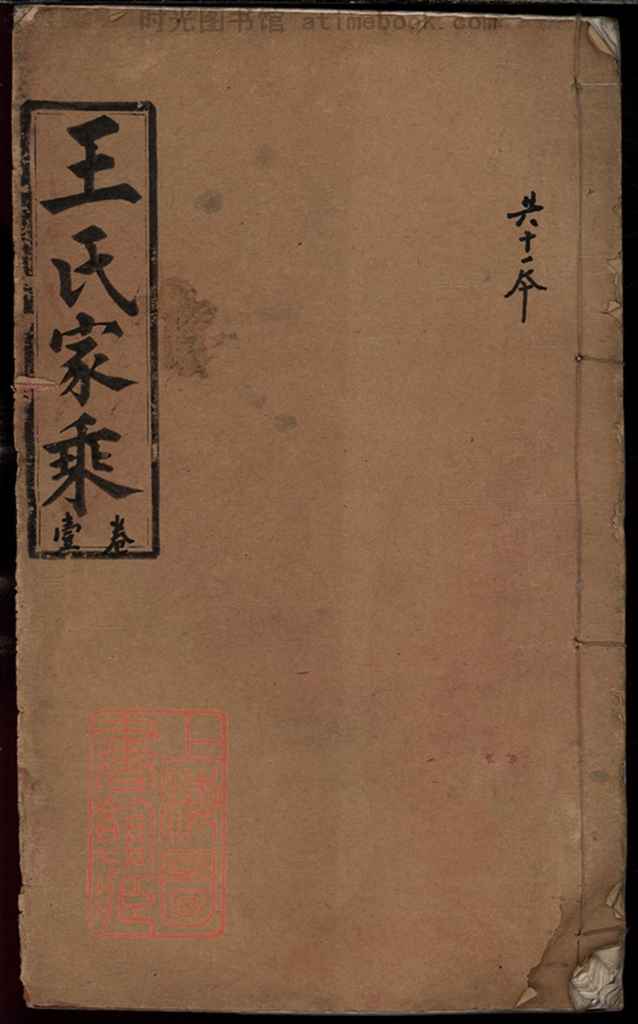 时光图书馆 atimebook.com
共十一本
王氏家乘
卷壹
上海图书馆藏